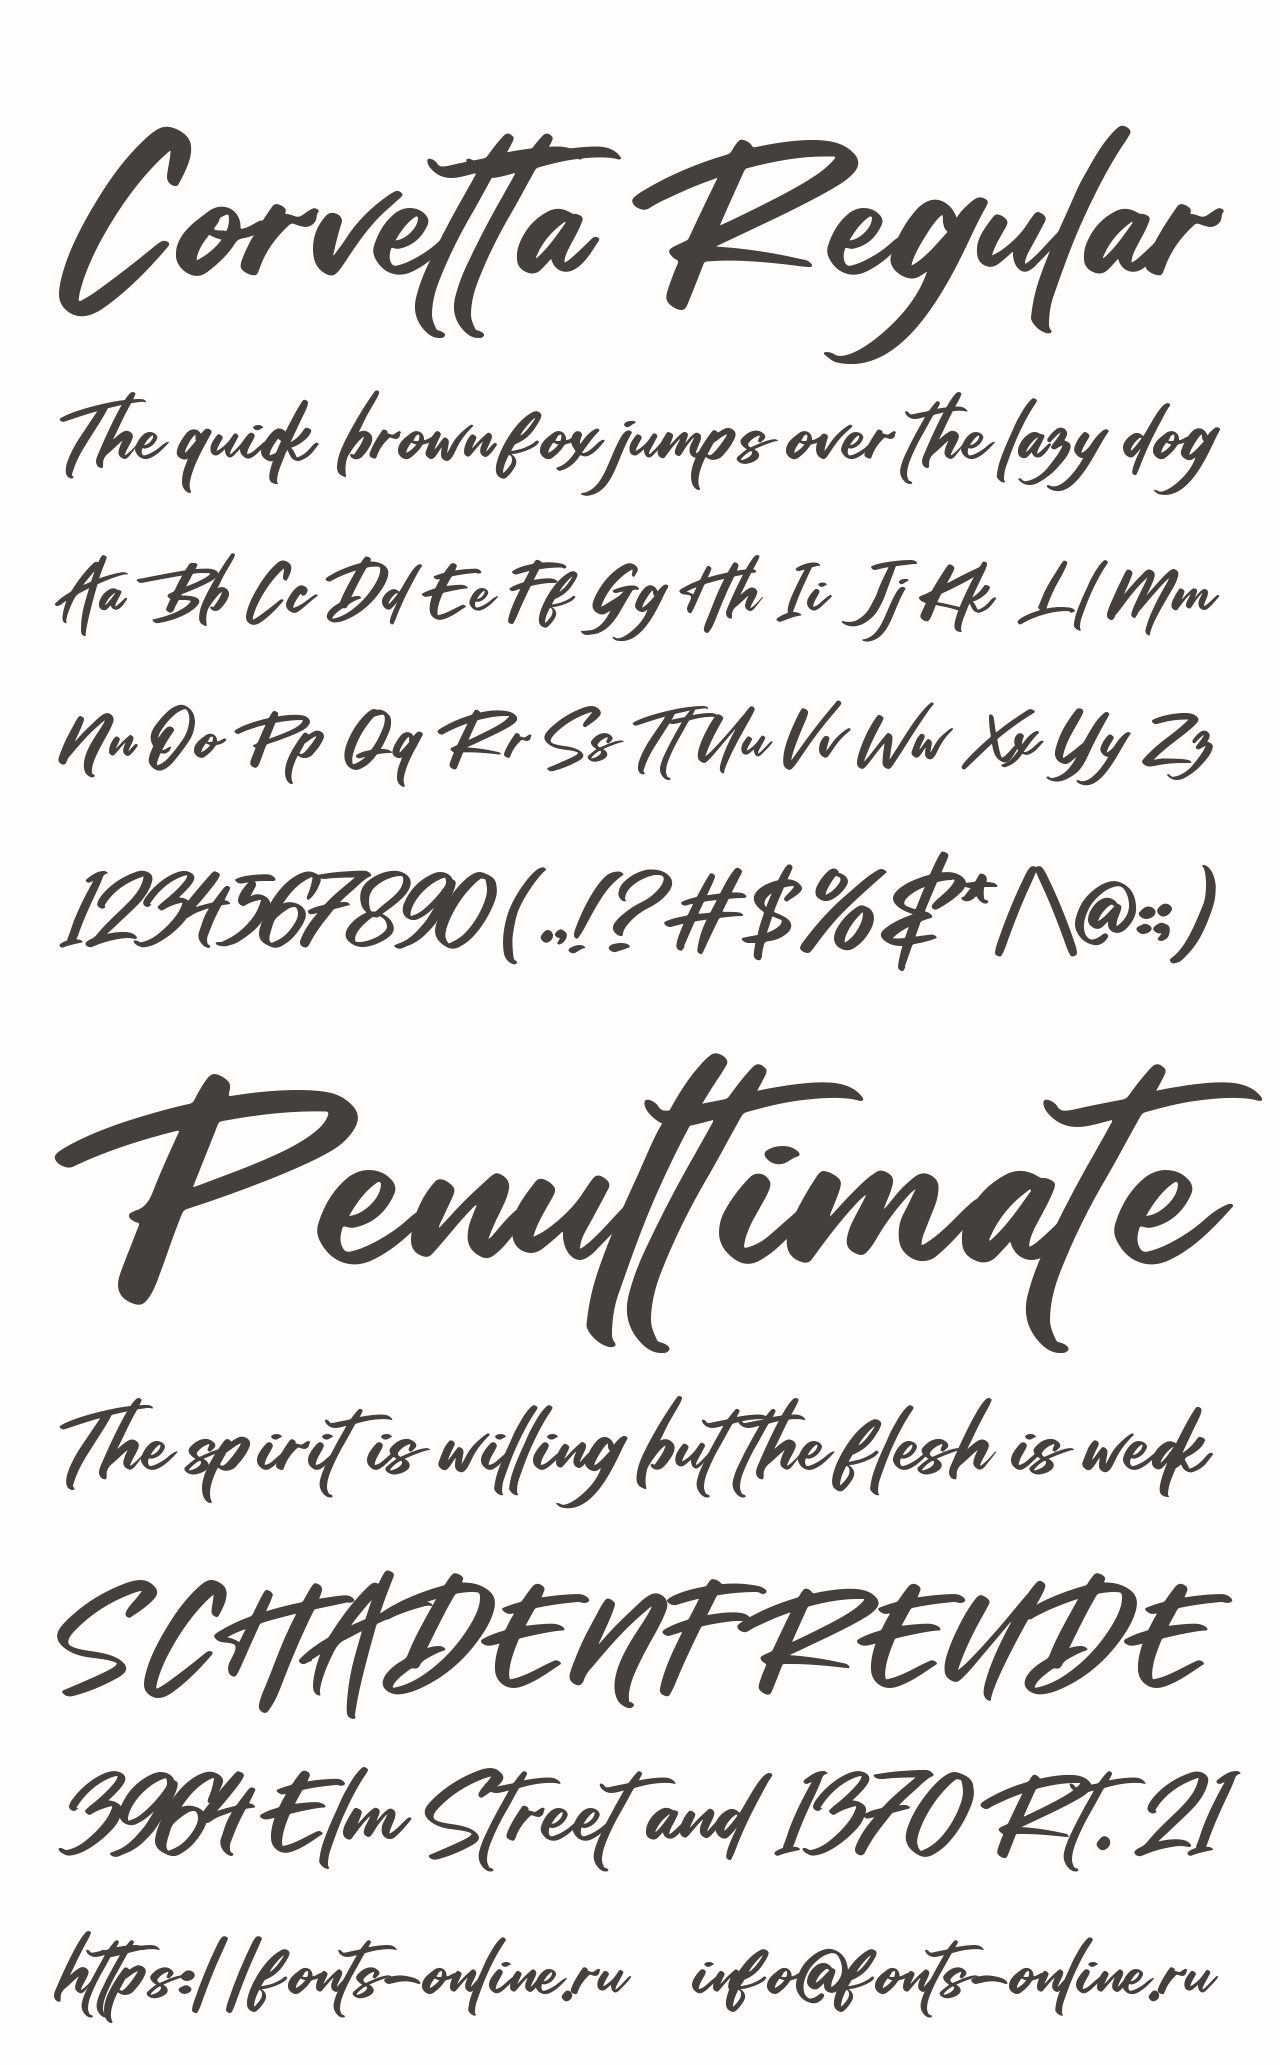 Corvetta Regular
The quick brown fox jumps over the lazy dog
Aa Bb Cc Dd Ee Ff Gg Hh Ii Jj Kk Ll Mm
Nn Oo Pp Qq Rr Ss Tt Uu Vv Ww Xx Yy Zz
1234567890(.,!?#$%&*/\@:;)
Penultimate
The spirit is willing but the flesh is weak
SCHADENFREUDE
3964 Elm Street and 1370 Rt. 21
https://fonts-online.ru info@fonts-online.ru